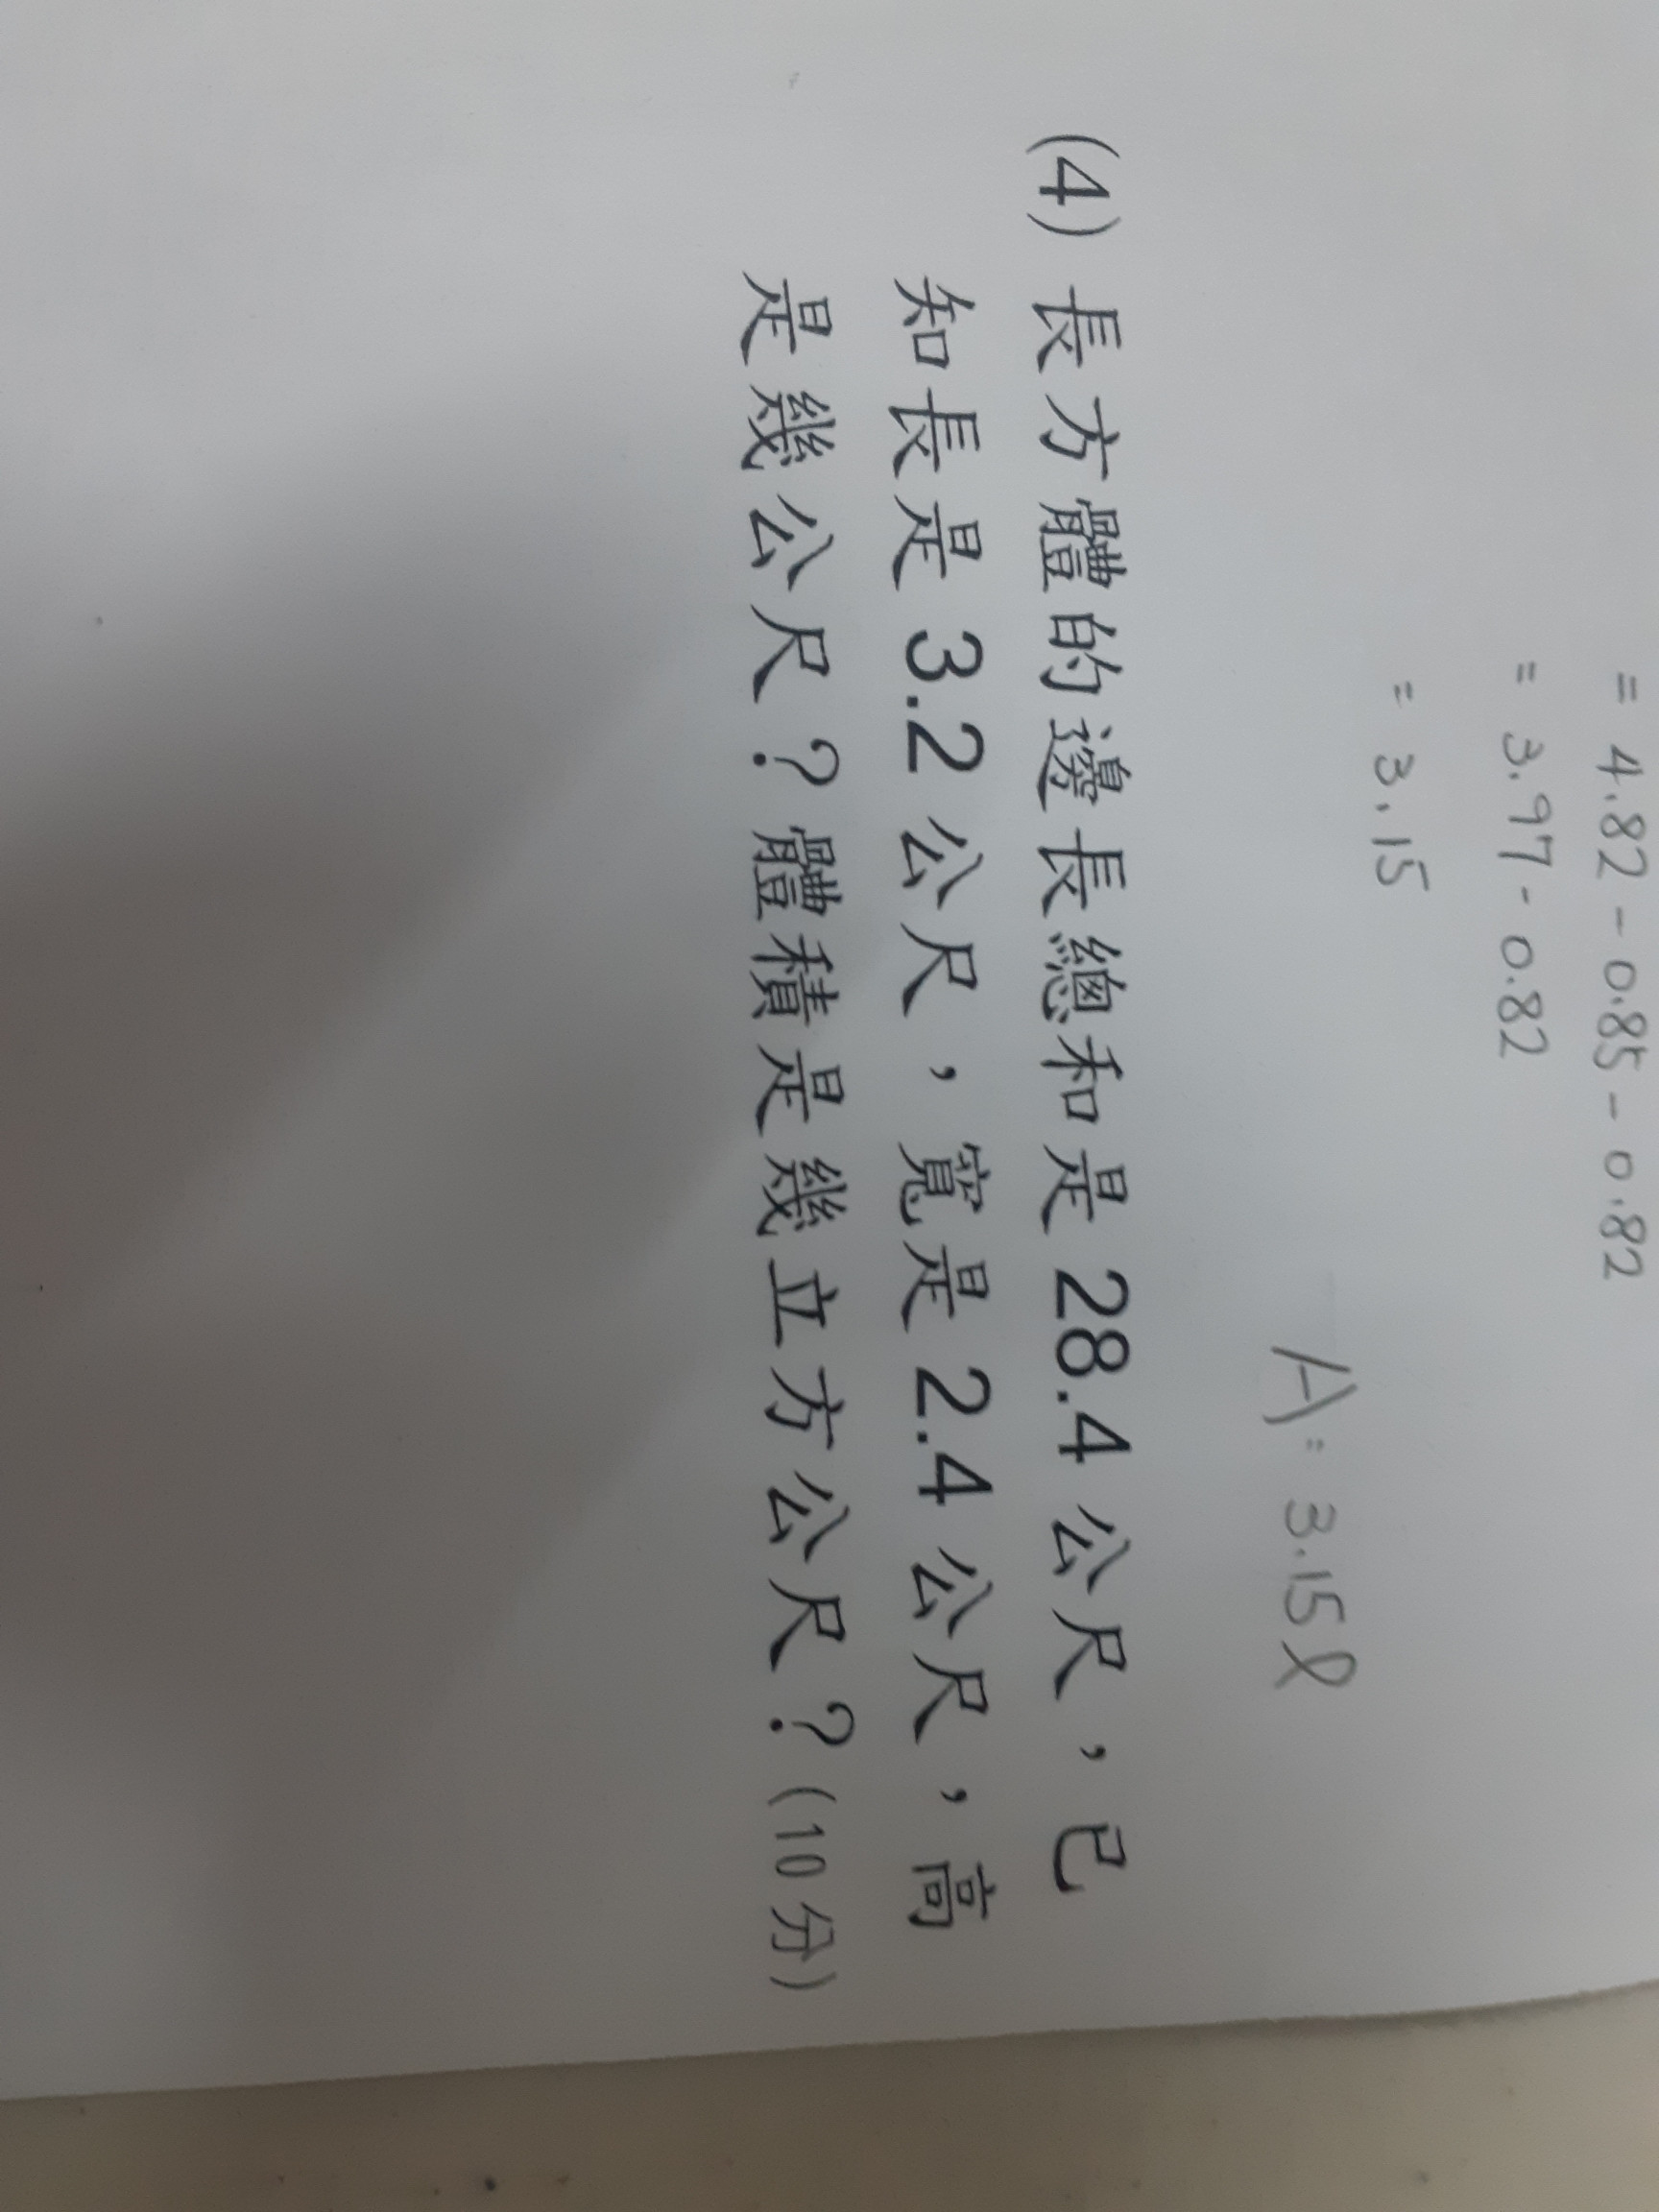 = 4.82 - 0.85 - 0.82
= 3.97 - 0.82
= 3.15
A = 3.15ℓ
(4) 長方體的邊長總和是 28.4 公尺，已
知長是 3.2 公尺，寬是 2.4 公尺，高
是幾公尺？體積是幾立方公尺？(10 分)